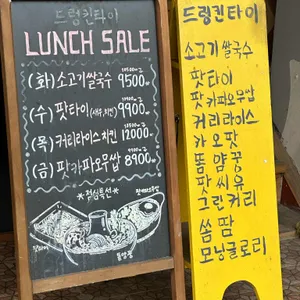 드렁킨타이
LUNCH SALE
(화) 소고기쌀국수 9500원
(수) 팟타이 (새우,치킨) 9900원
(목) 커리라이스치킨 12000원
(금) 팟카파오무쌉 8900원
*점심특선*
팟타이
똠얌꿍
드렁킨타이
소고기쌀국수
팟타이
팟카파오무쌉
커리라이스
카오팟
똠얌꿍
팟씨유
그린커리
쏨땀
모닝글로리